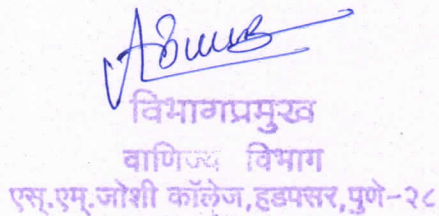 विभागप्रमुख
वाणिज्य विभाग
एस्.एम्.जोशी कॉलेज,हडपसर,पुणे-२८